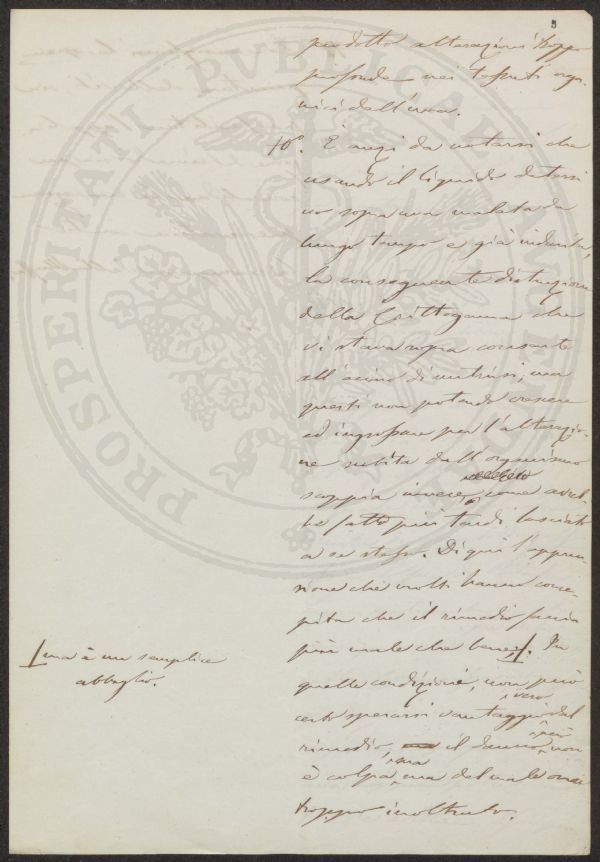 3
prodotto alterazioni troppo
profonde nei tessuti orga-
nici dell'uva.
10°. È anzi da notarsi che
usando il liquido detersi
vo sopra uva malata da
lungo tempo e già indurita,
la conseguente distruzione
della Crittogama che
vi stava sopra consente
all'acino di nutrirsi, ma
questi non potendo crescere
ed ingrossare per l'alterazio-
ne subita dall'organismo
scoppia invece, come avreb-
be fatto più tardi lasciato
a se stesso. Di qui l'appren-
sione che molti hanno conce-
pita che il rimedio faccia
più male che bene. In
ma è un semplice
abbaglio.
quelle condizioni, non può
vero
certo sperarsi vantaggio dal
però
rimedio, il danno non
sua
è colpa ma del male
troppo inoltrato.
PROSPERITATI PVBLICAE AVGENDAE